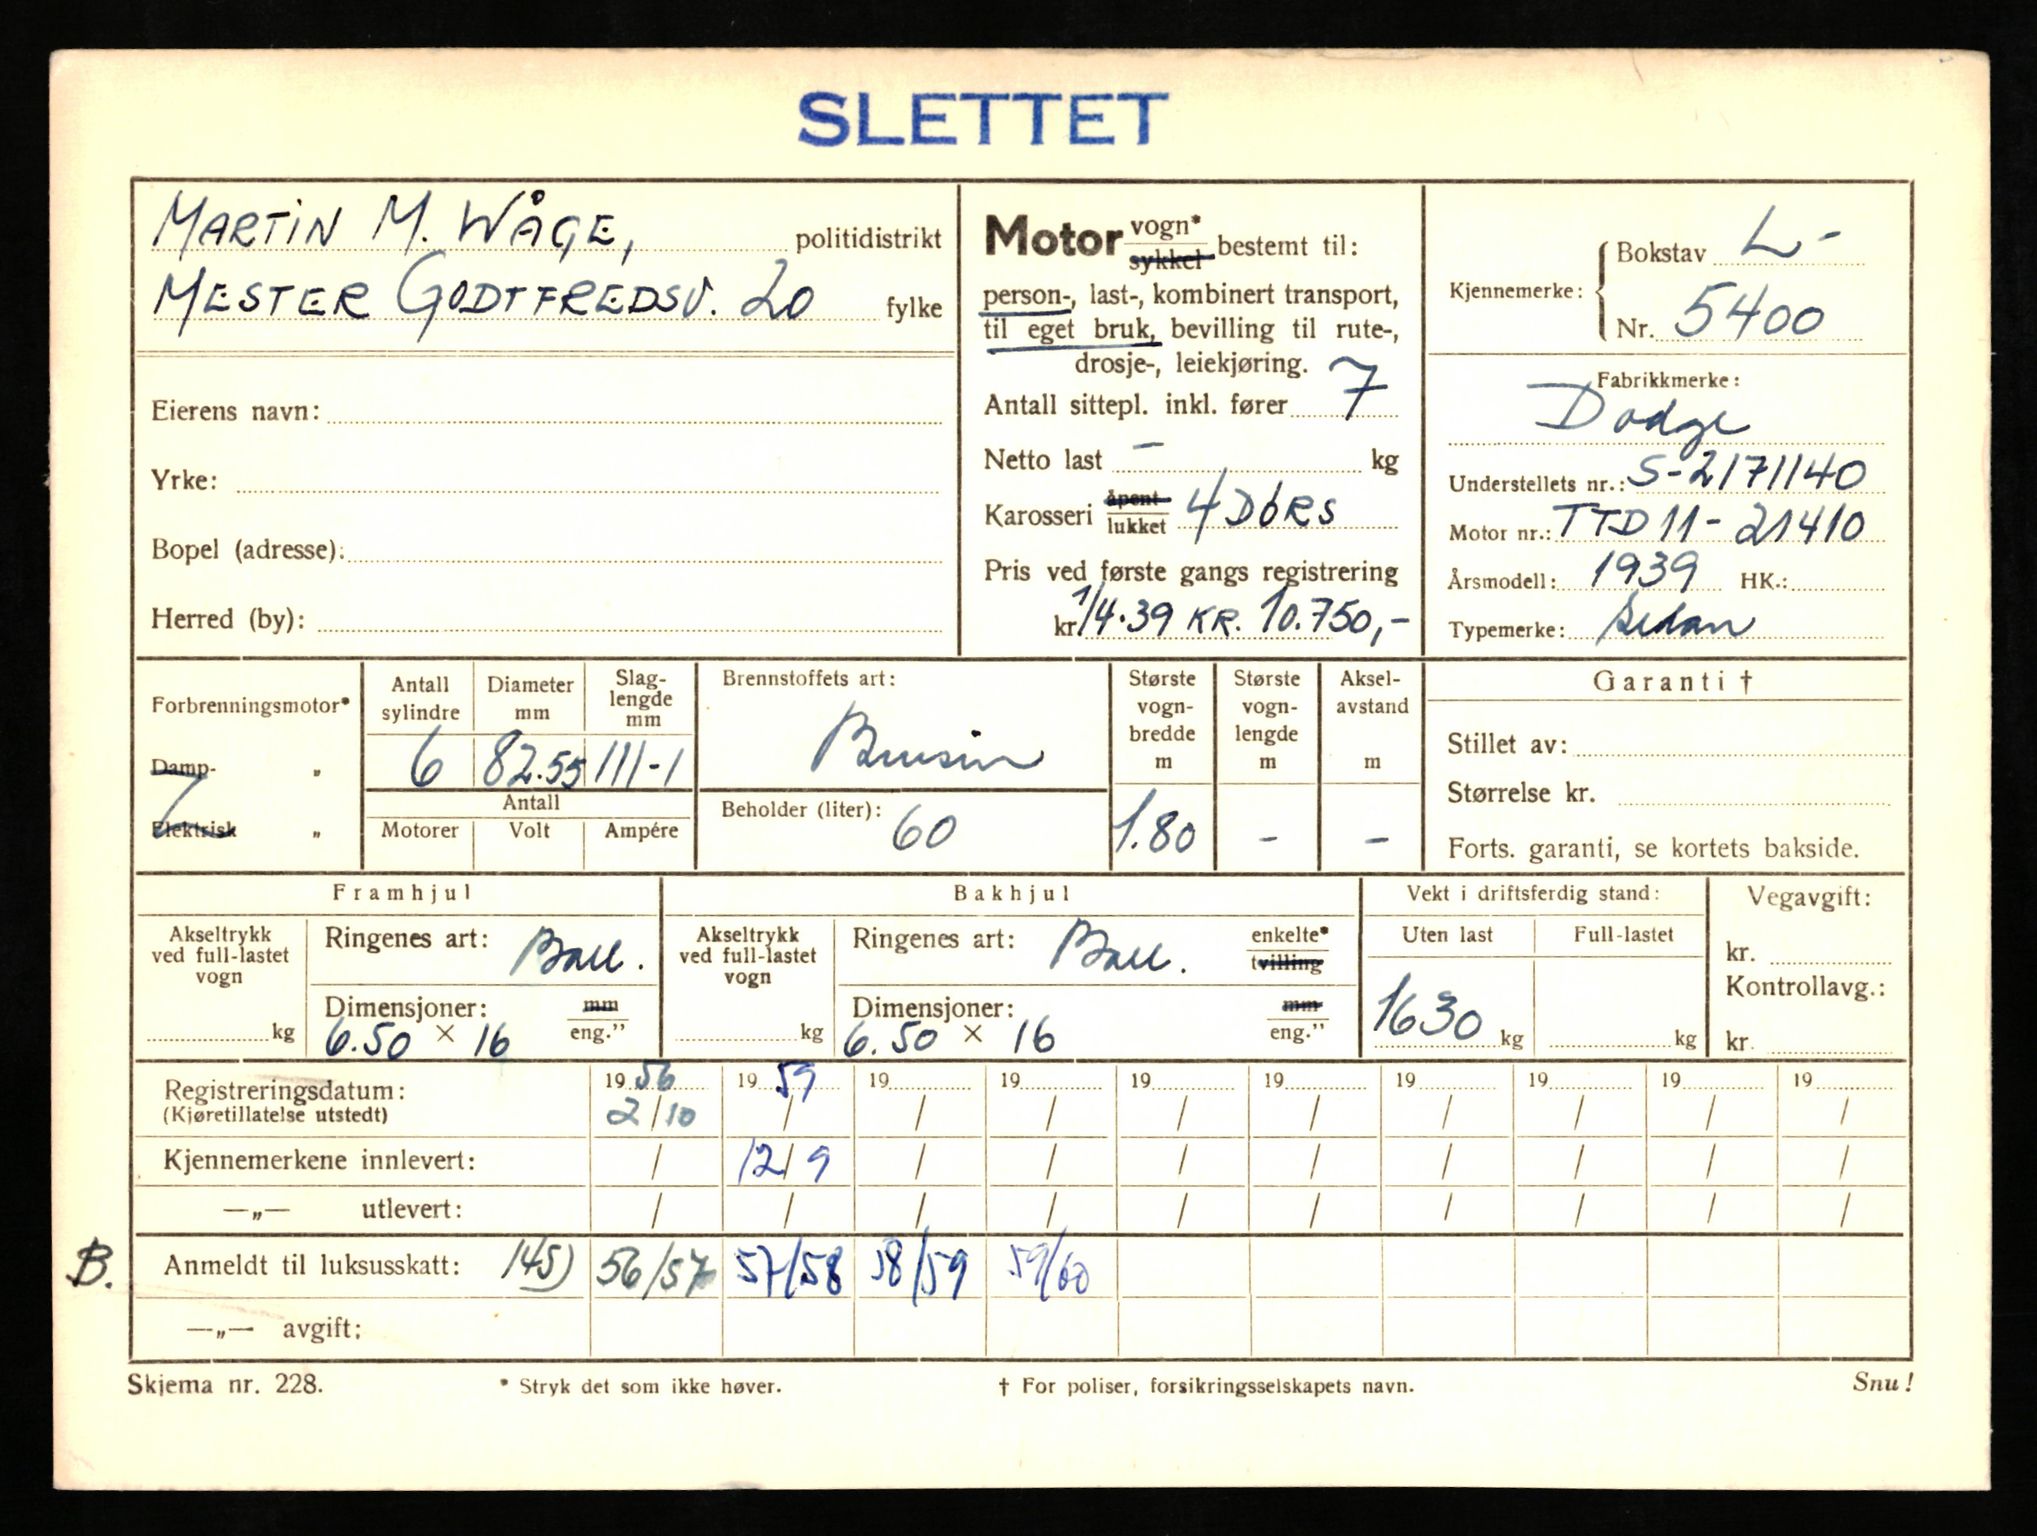 SLETTET
MARTIN M. WÅGE, politidistrikt
MESTER GODTFREDSV. 20 fylke
Eierens navn:
Yrke:
Bopel (adresse):
Herred (by):
Motor vogn* sykkel bestemt til:
person-, last-, kombinert transport,
til eget bruk, bevilling til rute-,
drosje-, leiekjøring.
Antall sittepl. inkl. fører 7
Netto last - kg
Karosseri åpent lukket 4 DØRS
Pris ved første gangs registrering
kr 1/4.39 KR. 10.750,-
Kjennemerke: Bokstav L-
Nr. 5400
Fabrikkmerke:
Dodge
Understellets nr.: S-2171140
Motor nr.: TTD11-21410
Årsmodell: 1939 HK.:
Typemerke: Sedan
Forbrenningsmotor*
Damp- „
Elektrisk „
Antall sylindre
Diameter mm
Slag-
lengde
mm
6 82.55 111-1
Antall
Motorer Volt Ampére
Brennstoffets art:
Bensin
Beholder (liter): 60
Største
vogn-
bredde
m
1.80
Største
vogn-
lengde
m
-
Aksel-
avstand
m
-
Garanti †
Stillet av:
Størrelse kr.
Forts. garanti, se kortets bakside.
Framhjul
Akseltrykk
ved full-lastet
vogn
kg
Ringenes art: Ball.
Dimensjoner: mm
6.50 × 16 eng.”
Bakhjul
Akseltrykk
ved full-lastet
vogn
kg
Ringenes art: Ball. enkelte*
tvilling
Dimensjoner: mm
6.50 × 16 eng.”
Vekt i driftsferdig stand:
Uten last Full-lastet
1630 kg kg
Vegavgift:
kr.
Kontrollavg.:
kr.
Registreringsdatum: 19 56 19 59 19 19 19 19 19 19 19 19
(Kjøretillatelse utstedt) 2/10 / / / / / / / / /
Kjennemerkene innlevert: / 12/9 / / / / / / / /
—„— utlevert: / / / / / / / / / /
B. Anmeldt til luksusskatt: 145) 56/57 57/58 58/59 59/60
—„— avgift:
Skjema nr. 228. * Stryk det som ikke høver. † For poliser, forsikringsselskapets navn. Snu!